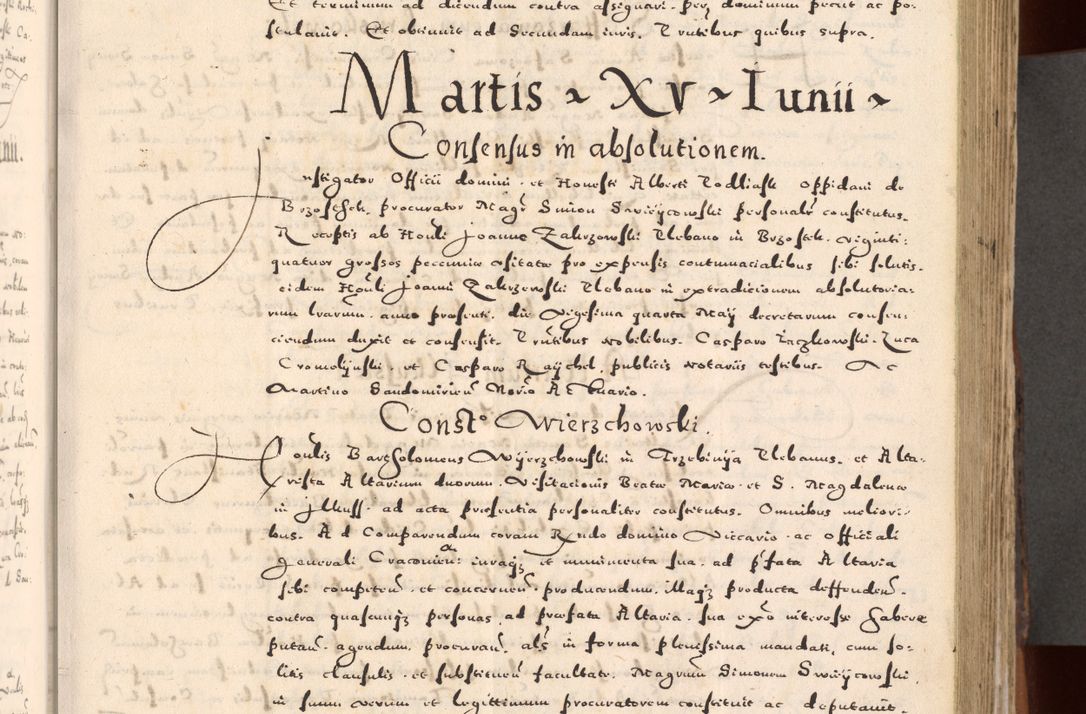 Et terminum ad dicendum contra assignari. per dominum petiit ac po-
stulavit. Et obtinuit ad Secundam iuris. Tentibus quibus supra.
Martis ~ XV ~ Iunii ~
Consensus in absolutionem.
Instigator Officii domini et Honesti Alberti Podliask Oppidani de
Brzosthek. procurator Magr Simon Swieijcowski personalr constitutus.
Receptis ab Honli Joanne Zakrzowski Plebano in Brzostek. viginti:
quatuor grossos pecuniæ usitatæ pro expensis contumacialibus sibi solutis.
eidem Honli Joanni Zakrzewski Plebano in extradicionem absolutoria-
rum lrarum. anno præsenti. die vigesima quarta Maij decretarum consen-
ciendum duxit et consensit. Prntibus nobilibus. Casparo Łaczkowski. Luca
Cromolijnski. et Casparo Raijchel. publicis notariis testibus. Ac
Martino Sandomirien Norio Actuario.
Consto Wierzchowski.
Honlis Bartholomeus Wijerzchowski in Trzebinija Plebanus. et Alta-
rista Altarium duorum. Visitacionis Beatæ Mariæ et S. Magdalenæ
in Jlkuss. ad acta præsentia personaliter constitutus. Omnibus meliori-
bus. Ad Comparendum coram Rndo domino Viccario. ac Officiali
generali Cracovien: iuraqz et munimenta sua. ad pfata Altaria
sibi competen. et concernen producendum. Illaqz producta deffenden.
contra quascunqz personas, ad præfata Altaria. sua exo interesse habere
putan. agendum, procuran, als in forma, plenissima mandati, cum so-
litis clausulis. et substituen facultate. Magrum Simonem Swieijcowski.
in suum verum et legittimum procuratorem constituit ac deputavit.